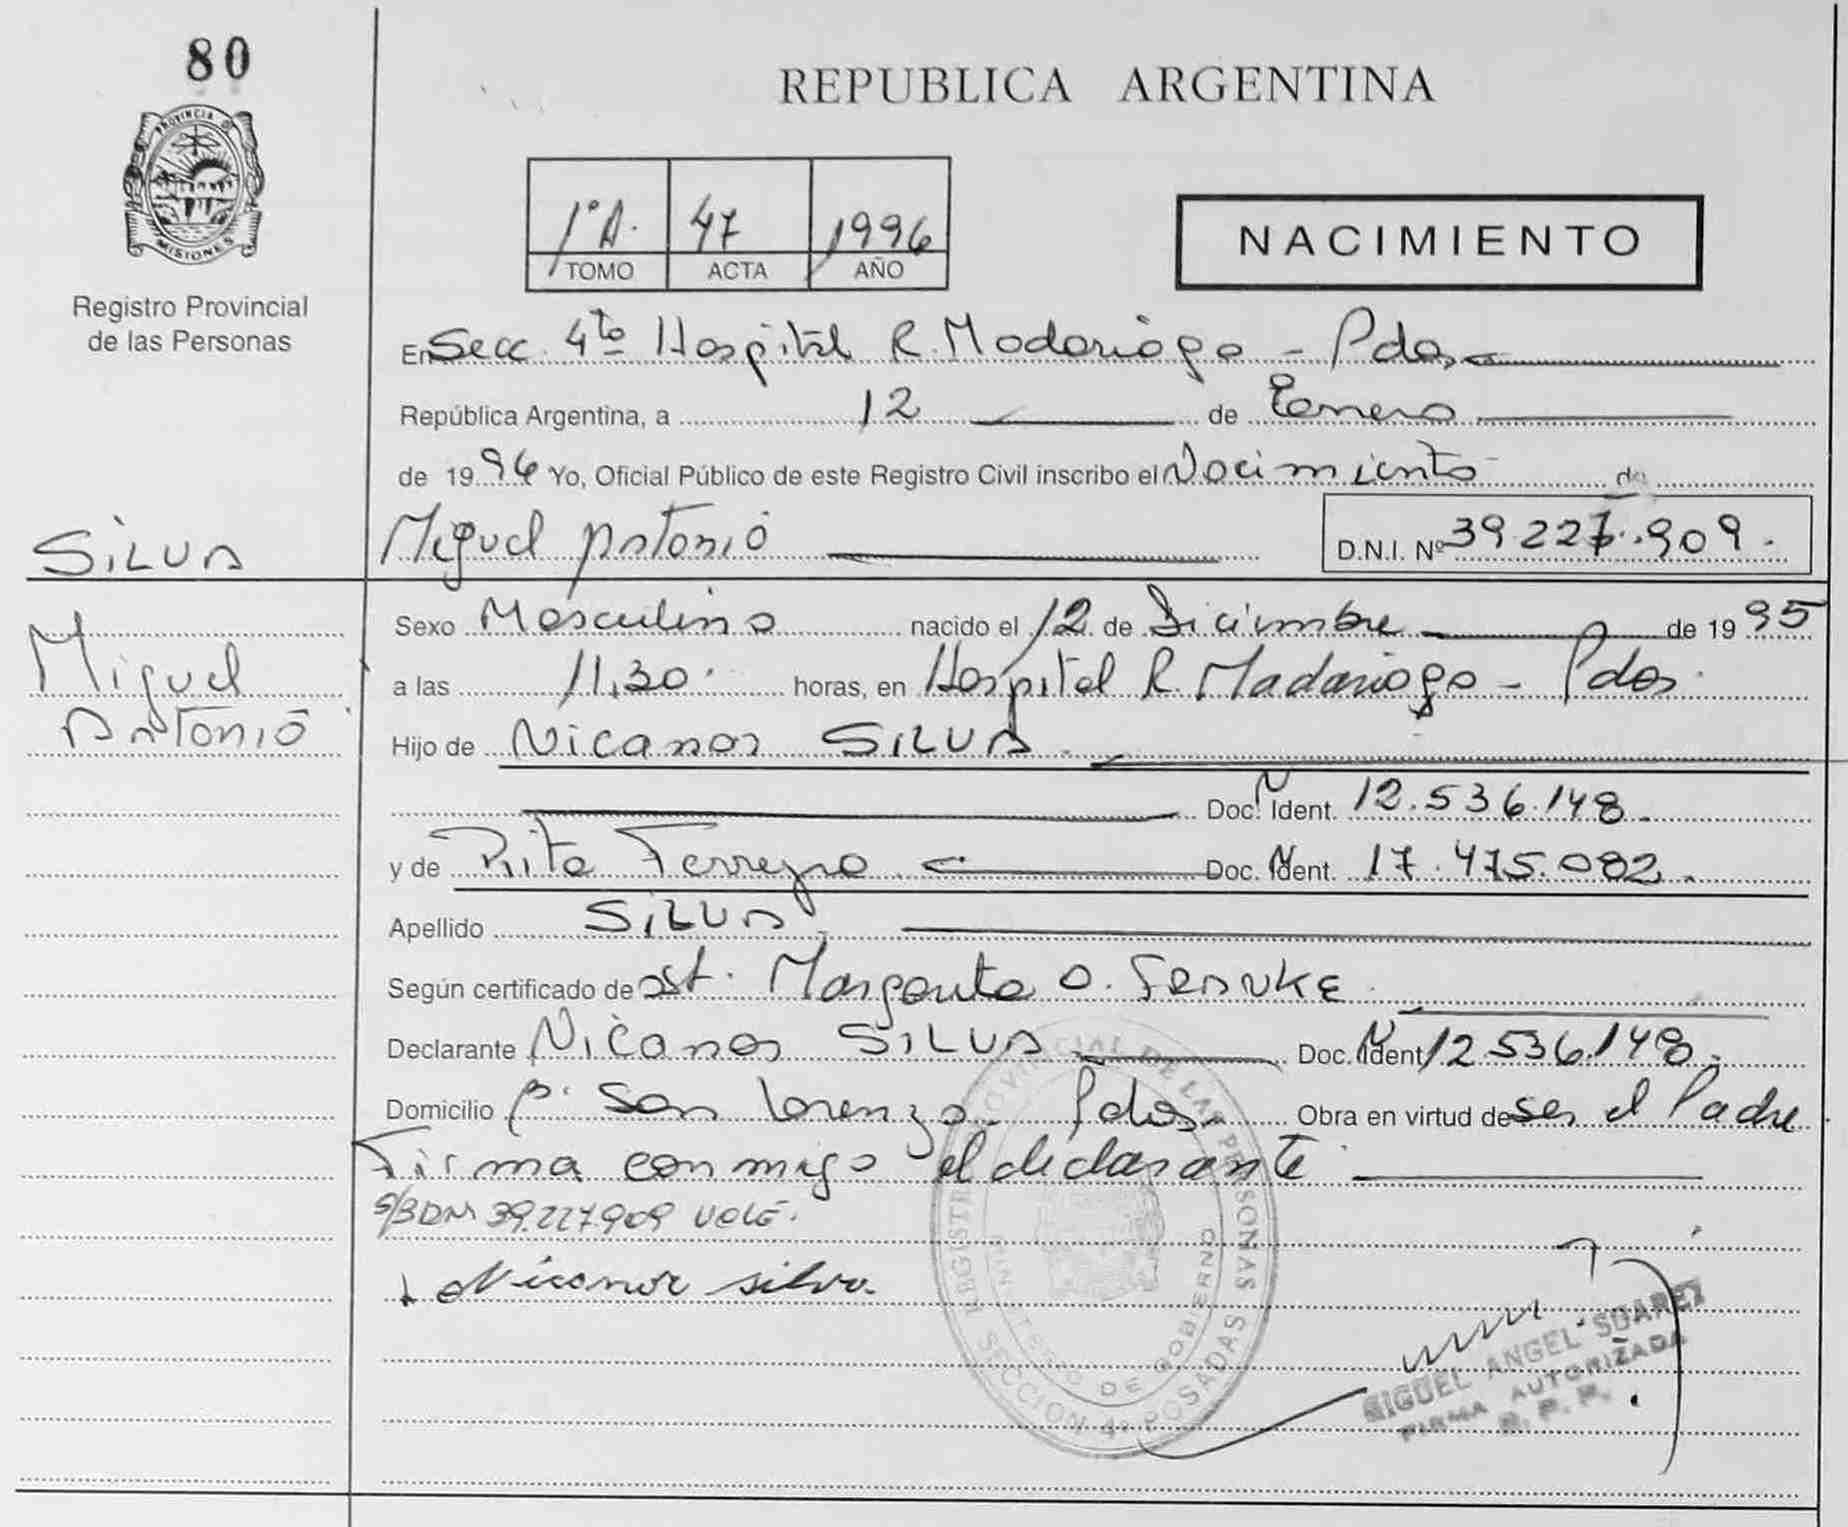 80
PROVINCIA D
MISIONES
Registro Provincial
de las Personas
REPUBLICA ARGENTINA
1º A. 47 1996
TOMO ACTA AÑO
NACIMIENTO
En Secc. 4ta Hospital R. Madariaga - Pdas
República Argentina, a 12 de Enero
de 1996 Yo, Oficial Público de este Registro Civil inscribo el Nacimiento de
SILVA
Miguel Antonio D.N.I. Nº 39.227.909.
Miguel
Antonio
Sexo Masculino nacido el 12 de Diciembre de 1995
a las 11,30. horas, en Hospital R. Madariaga - Pdas.
Hijo de Nicanor SILVA.
Doc. N Ident. 12.536.148.
y de Rita Ferreyra Doc. N Ident. 17.475.082.
Apellido SILVA
Según certificado de Ost. Margarita O. FRANKE
Declarante Nicanor SILVA Doc. N Ident 12 536.148.
Domicilio Bº. San Lorenzo. Pdas. Obra en virtud de ser el Padre
Firma conmigo el declarante
39.227.909 VALE.
Nicanor silva.
REGISTRO PROVINCIAL DE LAS PERSONAS
MINISTERIO DE GOBIERNO
SECCION 4º POSADAS
MIGUEL ANGEL SUAREZ
FIRMA AUTORIZADA
R. P. P.